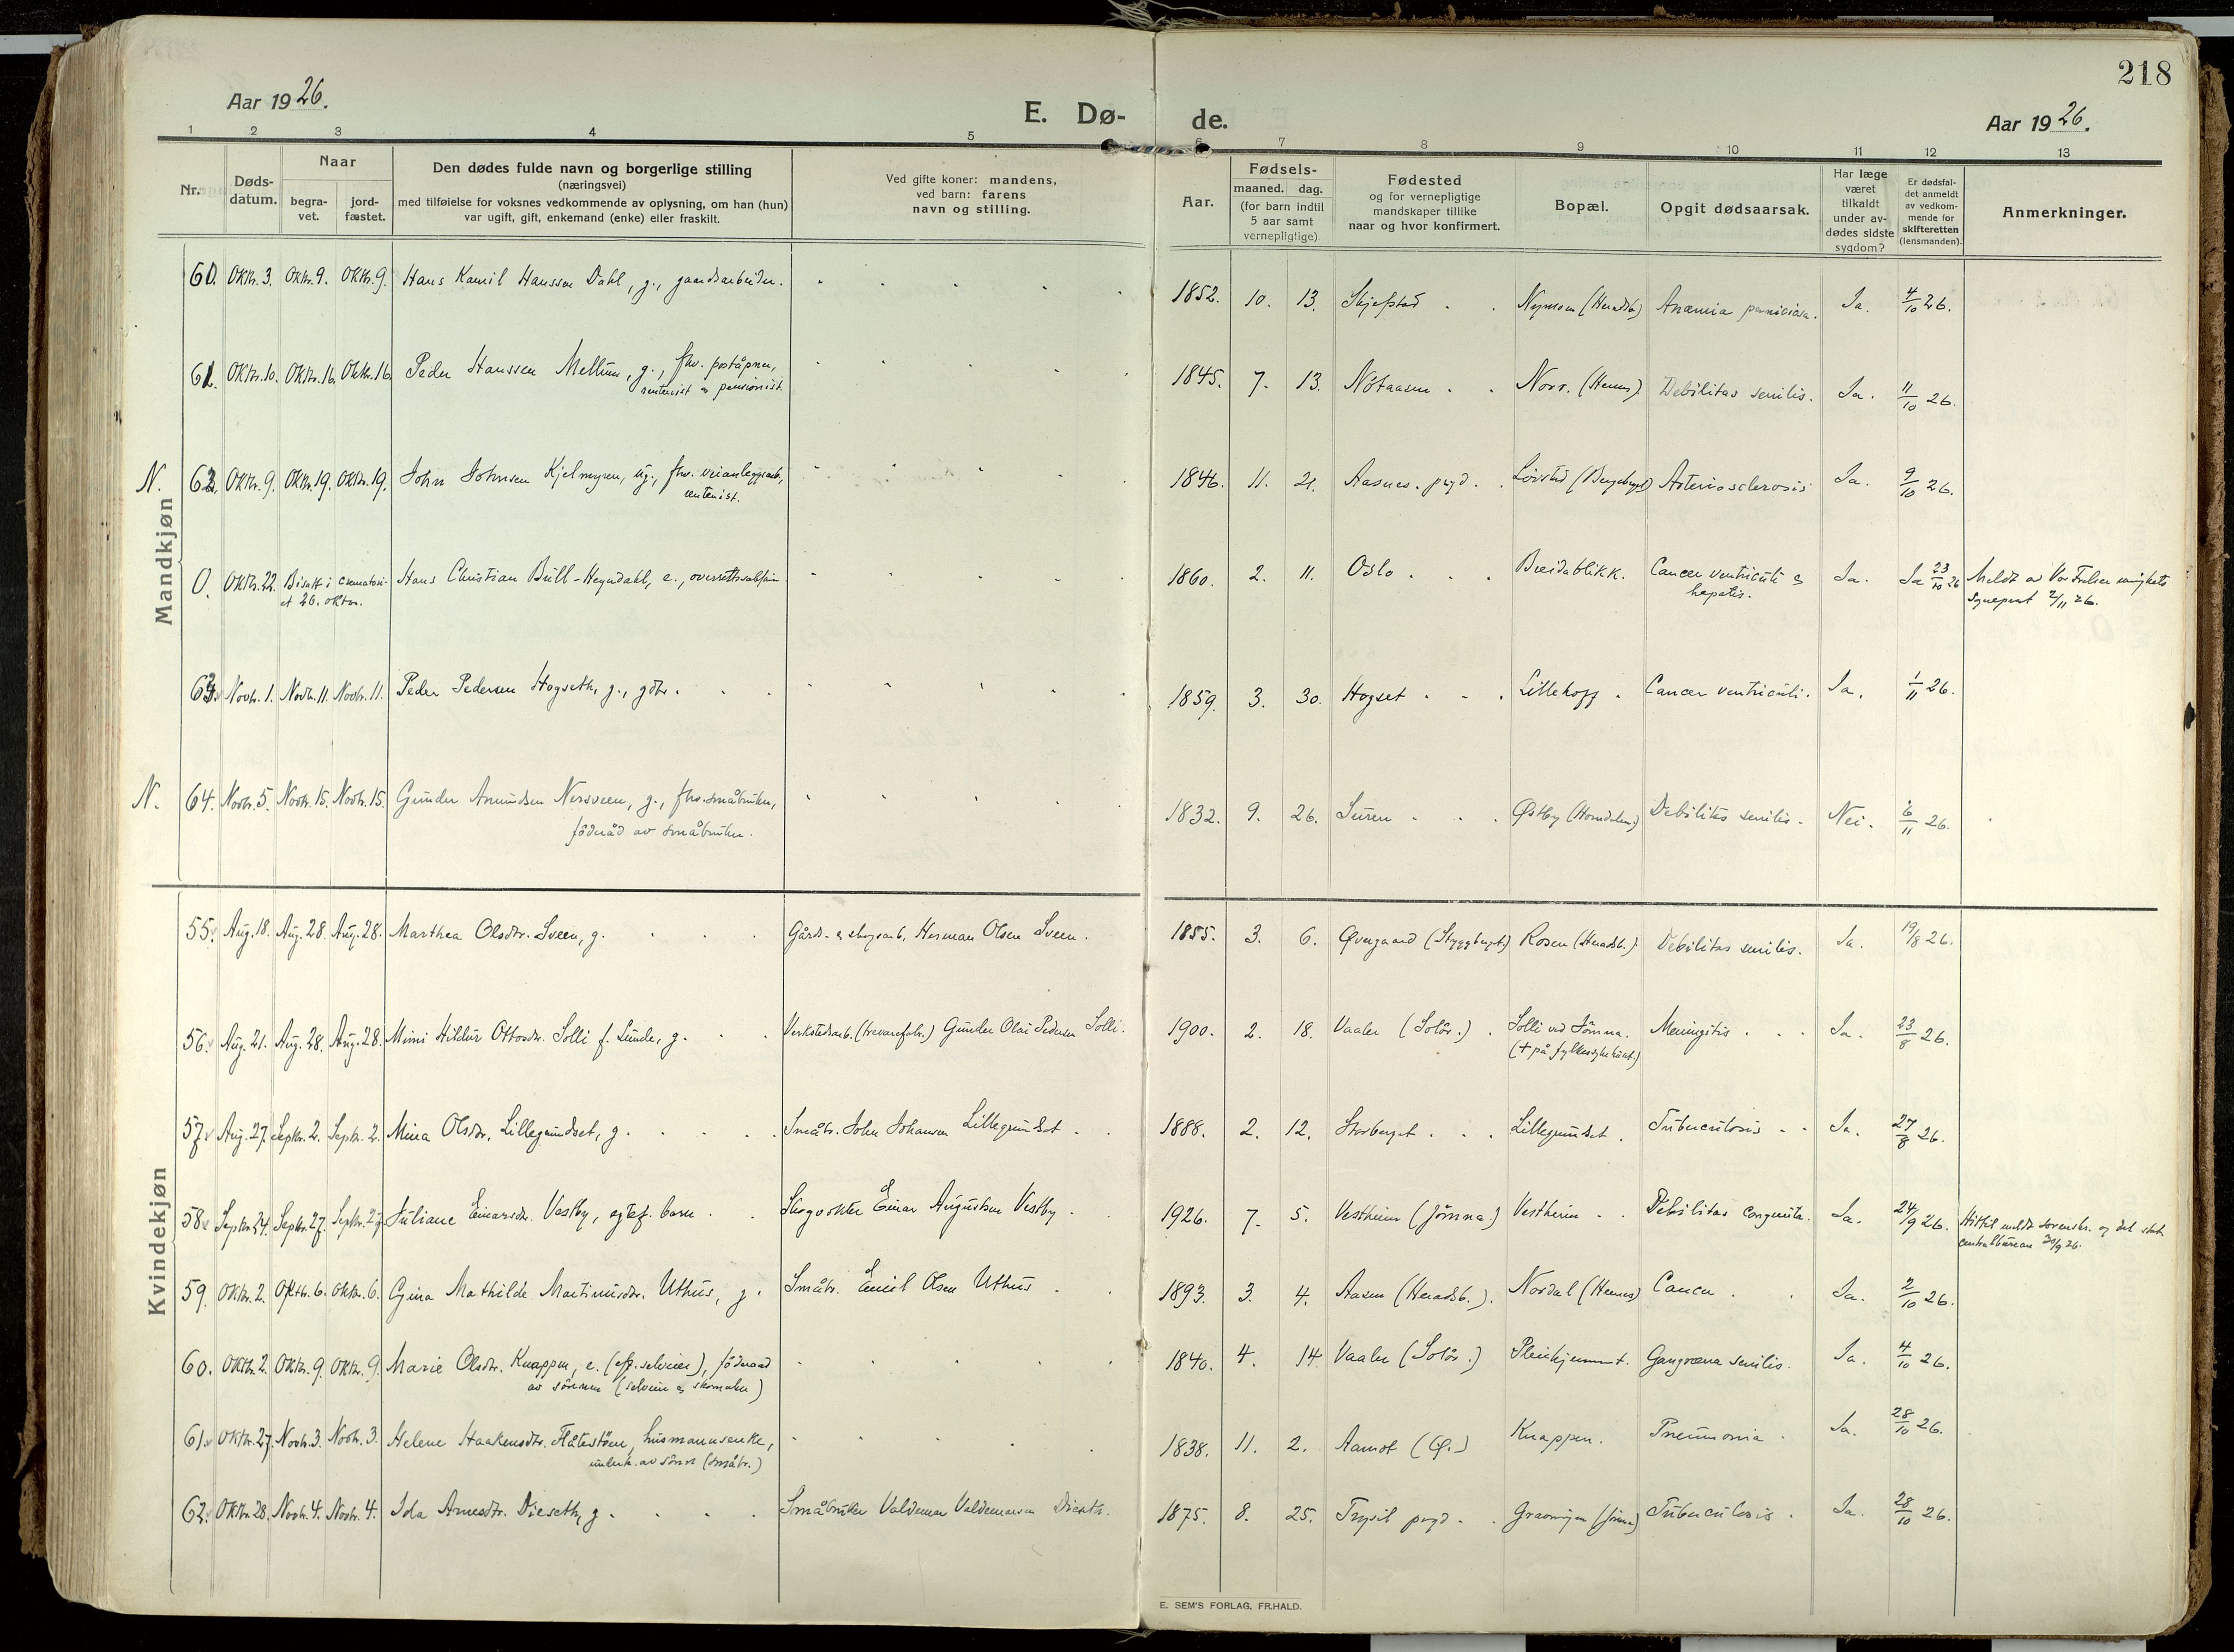 218
Aar 1926.
E. Dø-
de.
Aar 1926.
1 2 3 4 5 6 7 8 9 10 11 12 13
Nr.
Døds-
datum.
Naar
begra-
vet.
jord-
fæstet.
Den dødes fulde navn og borgerlige stilling
(næringsvei)
med tilføielse for voksnes vedkommende av oplysning, om han (hun)
var ugift, gift, enkemand (enke) eller fraskilt.
Ved gifte koner: mandens,
ved barn: farens
navn og stilling.
Aar.
Fødsels-
maaned. dag.
(for barn indtil
5 aar samt
vernepligtige)
Fødested
og for vernepligtige
mandskaper tillike
naar og hvor konfirmert.
Bopæl.
Opgit dødsaarsak.
Har læge
været
tilkaldt
under av-
dødes sidste
sygdom?
Er dødsfal-
det anmeldt
av vedkom-
mende for
skifteretten
(lensmanden).
Anmerkninger.
Mandkjøn
60. Oktr. 3. Oktr. 9. Oktr. 9. Hans Kamil Hanssen Dahl, g., gaardsarbeider. 1852. 10. 13. Skjefstad (Heradsb.) Anæmia perniciosa. Ja. 4/10 26.
61. Oktr. 10. Oktr. 16. Oktr. 16. Peder Hanssen Mellum, g., fhv. poståpner, 1845. 7. 13. Nötaasen Norr. (Hernes) Debilitas senilis. Ja. 11/10 26.
rentenist & pensionist.
N. 62. Oktr. 9. Oktr. 19. Oktr. 19. John Johnsen Kjelmyren, ug., fhv. veianleggsarb., 1846. 11. 21. Aasnes. prgd. Lövstad Arteriosclerosis Ja. 9/10 26.
rentenist.
0. Oktr. 22. Bisatt i crematori- Hans Christian Bull-Heyndahl, e., overrettssakfører 1860. 2. 11. Oslo Breidablikk. Cancer ventriculi & Ja. Ja 23/10 26 Meldt av Vor Frelser menighets
et 26. oktbr. hepatis. sogneprest 2/11 26.
63. Novbr. 1. Novbr. 11. Novbr. 11. Peder Pedersen Hogseth, g., gdbr. 1859. 3. 30. Hogset Lillehoff Cancer ventriculi. Ja. 1/11 26.
N. 64. Novbr. 5. Novbr. 15. Novbr. 15. Gunder Amundsen Nersveen, g., fhv. småbruker, 1832. 9. 26. Suren Østby Debilitas senilis. Nei. 6/11 26.
föderåd av småbruker.
Kvindekjøn
55. Aug. 18. Aug. 28. Aug. 28. Marthea Olsdtr. Sveen, g. Gårds- & skogsarb. Herman Olsen Sveen. 1855. 3. 6. Øvergaard Rosen (Heradsb.) Debilitas senilis. Ja. 19/8 26.
56. Aug. 21. Aug. 28. Aug. 28. Mimi Hildur Ottosdr. Solli f. Lunde, g. Verkstedsarb. (trevarefabr.) Gunder Olai Pedersen Solli. 1900. 2. 18. Vaaler (Solör.) Solli ved Jömna. Meningitis Ja. 23/8 26.
(+ på fylkessykehuset.)
57. Aug. 27. Septbr. 2. Septbr. 2. Mina Olsdr. Lillegrundset, g. Småbr. John Johansen Lillegrundset 1888. 2. 12. Storberget Lillegrundset. Tuberculosis Ja. 27/8 26.
58. Septbr. 24. Septbr. 27. Septbr. 27. Juliane Einarsdr. Vestby, egtef. barn Skogvokter Einar Augustsen Vestby 1926. 7. 5. Vestheim (Jömna.) Vestheim Debilitas congenita. Ja. 24/9 26. Attest meldt sorenskr. og det stat.
centralbureau 30/9 26.
59. Oktr. 2. Oktbr. 6. Oktbr. 6. Gina Mathilde Martinusdr. Uthus, g. Småbr. Emil Olsen Uthus 1893. 3. 4. Aasen (Heradsb.). Nordal (Hernes) Cancer Ja. 2/10 26.
60. Oktbr. 2. Oktr. 9. Oktr. 9. Marie Olsdr. Knappen, e. (eft. selveier), föderaad 1840. 4. 14. Vaaler (Solör.) Gangræna senilis. Ja. 4/10 26.
av sönnen (selveier & skomaker)
61. Oktr. 27. Novbr. 3. Novbr. 3. Helene Haakensdtr. Flåtestöen, husmannsenke, 1838. 11. 2. Aamot (Ø.) Knappen. Pneumonia Ja. 28/10 26.
underh. av sönn (småbr.)
62. Oktbr. 28. Novbr. 4. Novbr. 4. Ida Arnesdtr. Dieseth, g. Småbruker Valdemar Valdemarsen Dieseth. 1875. 8. 25. Trysil prgd. (Jömna) Tuberculosis Ja. 28/10 26.
E. SEM'S FORLAG, FR.HALD.